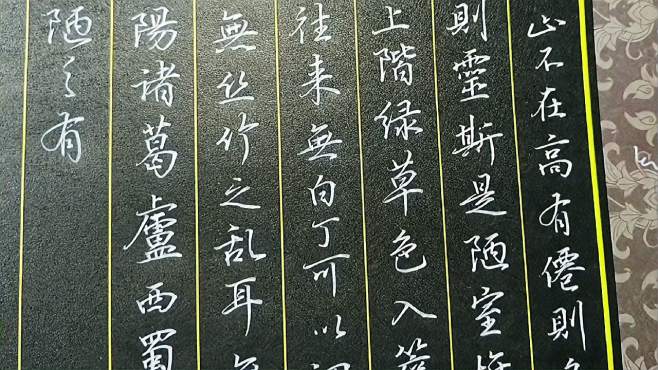 山不在高有僊則
則靈斯是陋室
上階绿草色入
往来無白丁可以
無丝竹之乱耳
陽諸葛廬西蜀
陋之有